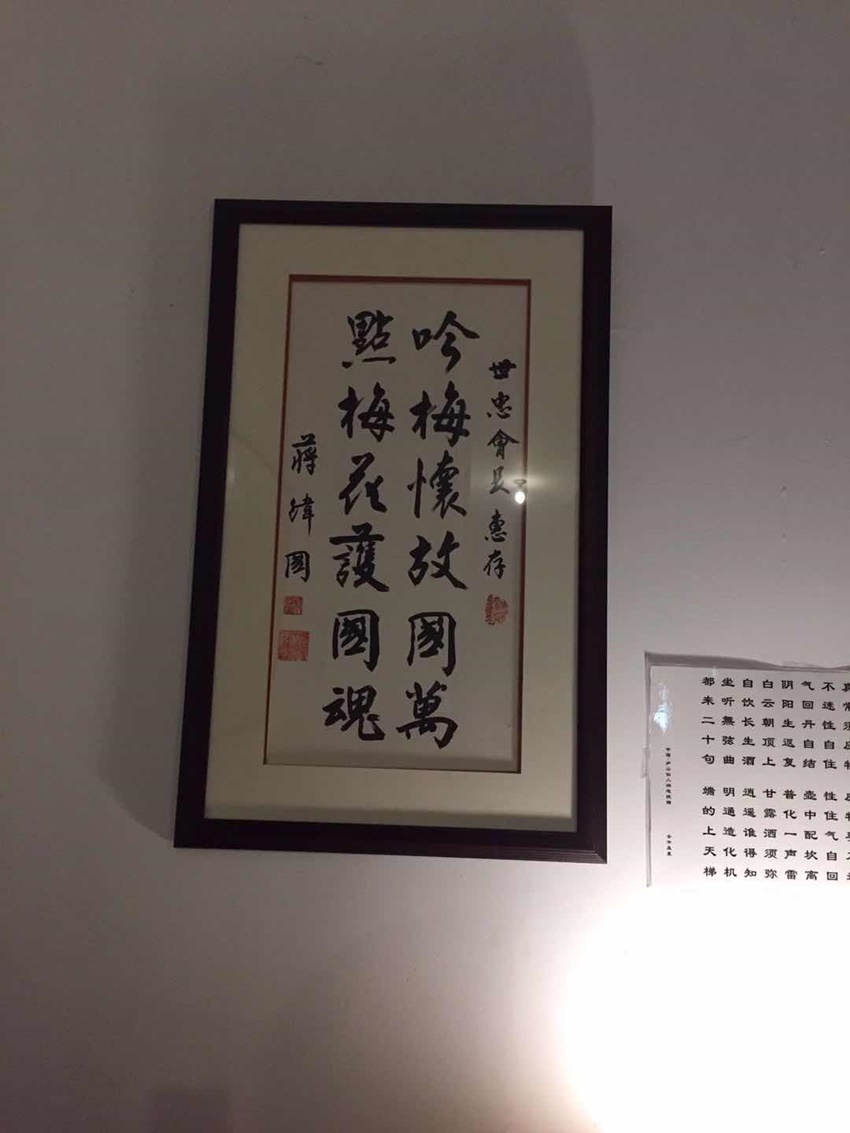 世忠會長惠存
吟梅懷故國萬
點梅花護國魂
蔣緯國
不迷性自住 性住气自回
气回丹自结 壶中配坎离
阴阳生返复 普化一声雷
白云朝顶上 甘露洒须弥
自饮长生酒 逍遥谁得知
坐听無弦曲 明通造化机
都来二十句 端的上天梯